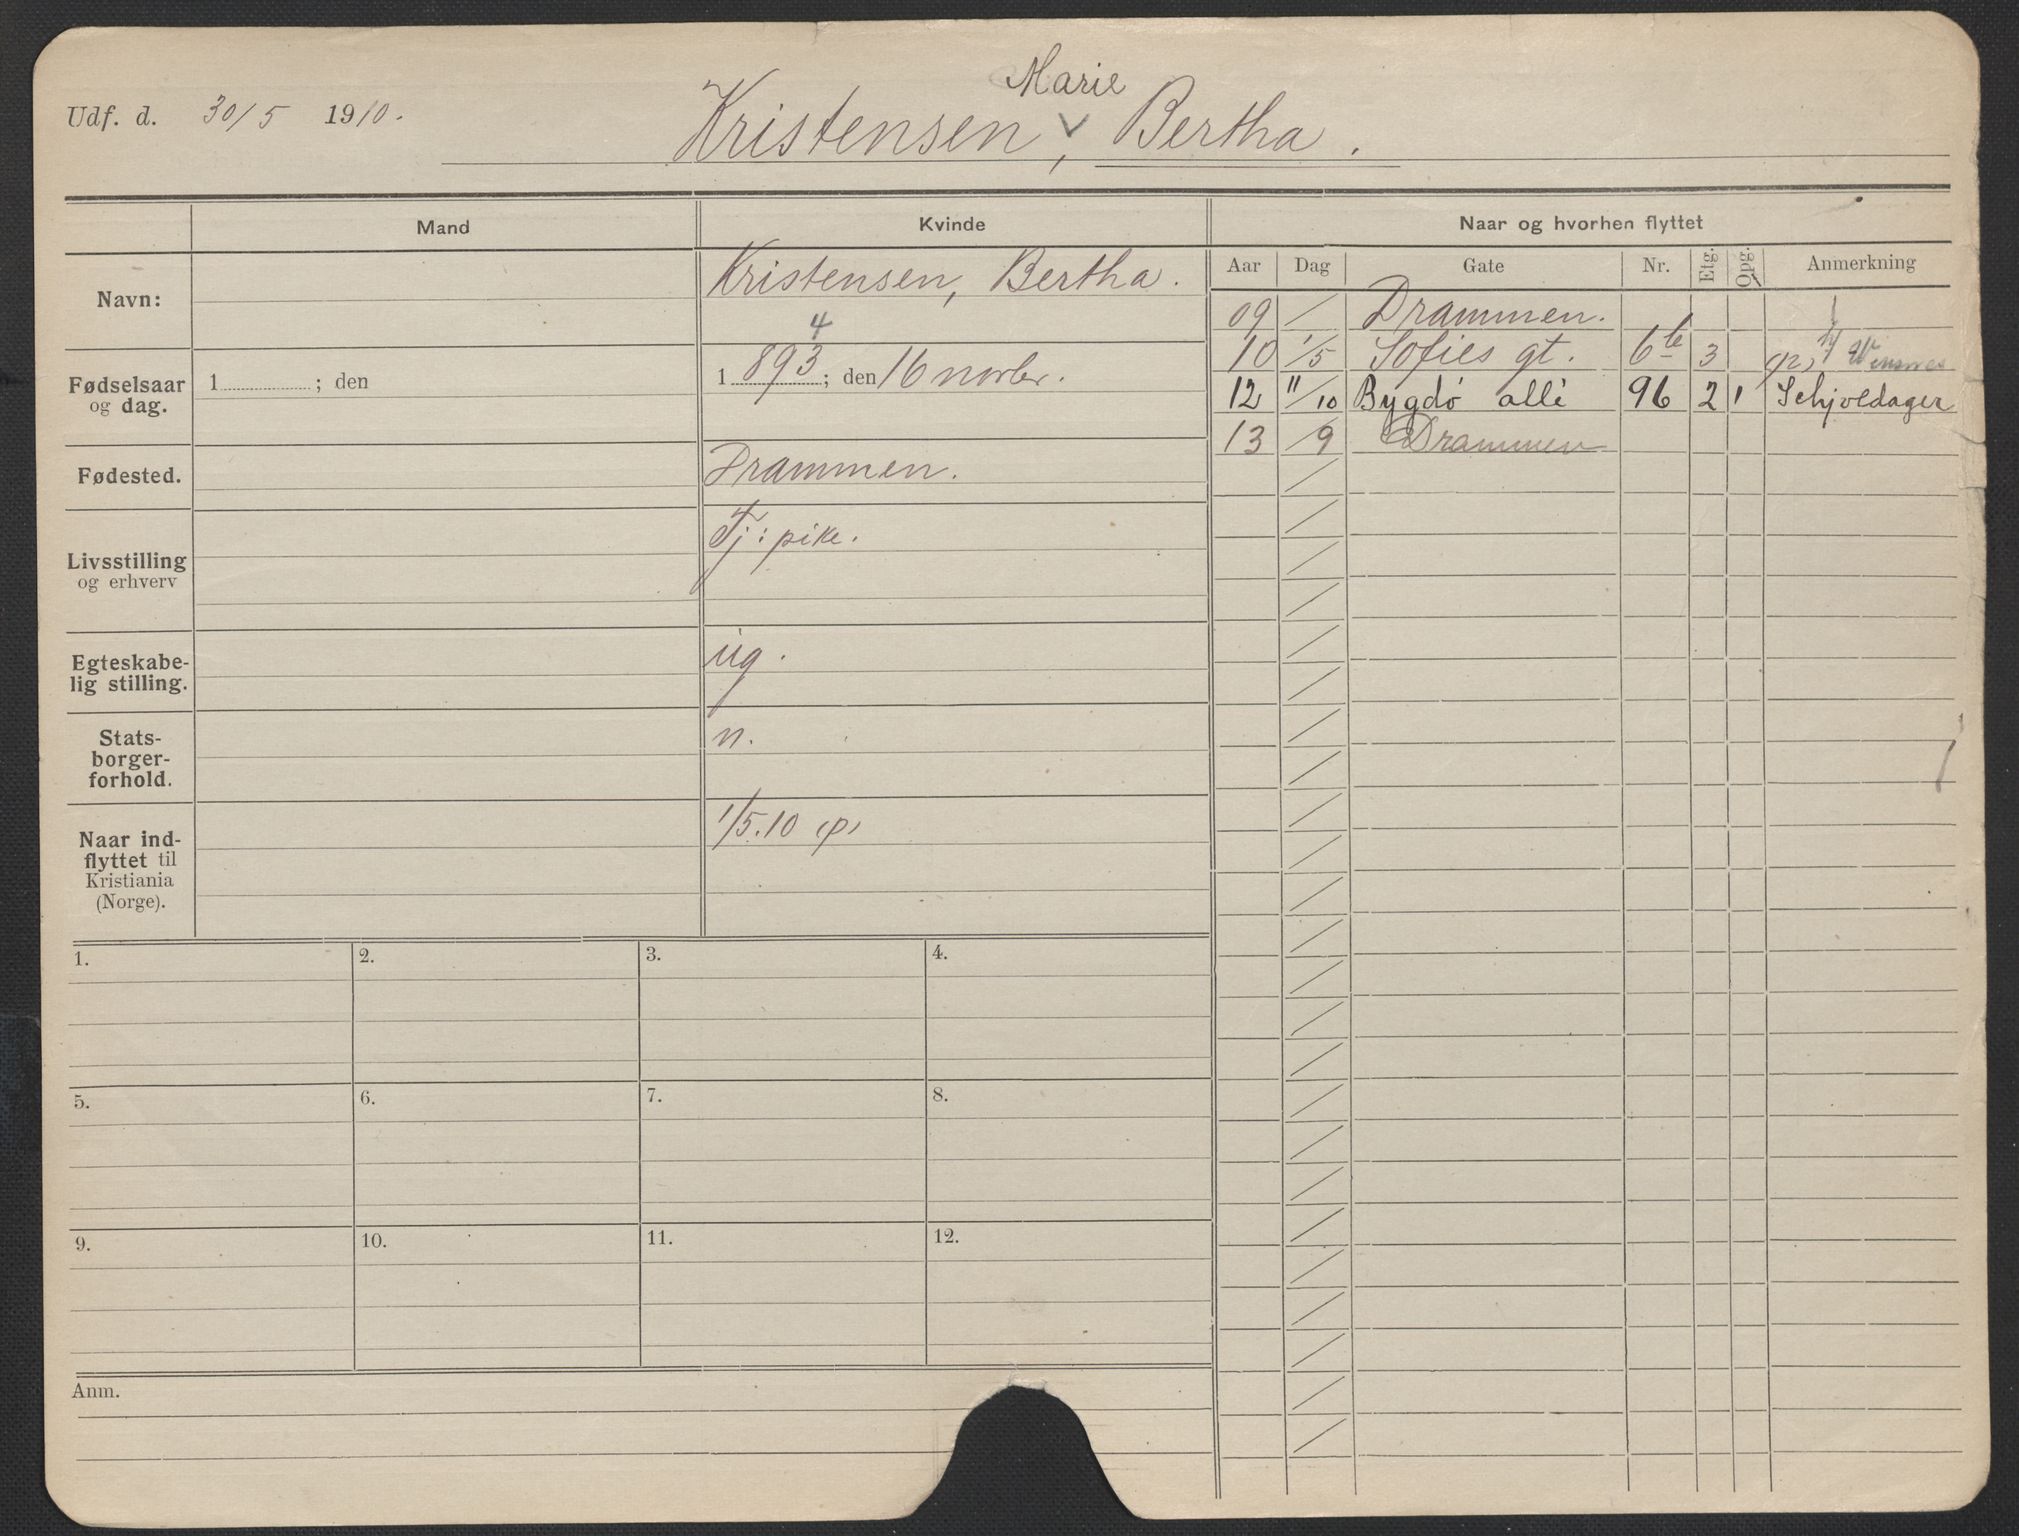 Marie
Udf. d. 30/5 1910. Kristensen, v Bertha.
Mand Kvinde Naar og hvorhen flyttet
Aar Dag Gate Nr. Etg. Opg. Anmerkning
Navn: Kristensen, Bertha.
09 / Drammen.
4
10 1/5 Sofies gt. 6 3
Fødselsaar og dag. 1 ; den 1 893 ; den 16 novbr.
12 "/10 Bygdø allé 96 2 1 Schjoldager
13 /9 Drammen
Fødested. Drammen.
Livsstilling og erhverv Tj: pike.
Egteskabe-
lig stilling. ug.
Stats-
borger-
forhold. n.
Naar ind-
flyttet til
Kristiania
(Norge). 1/5.10
1. 2. 3. 4.
5. 6. 7. 8.
9. 10. 11. 12.
Anm.